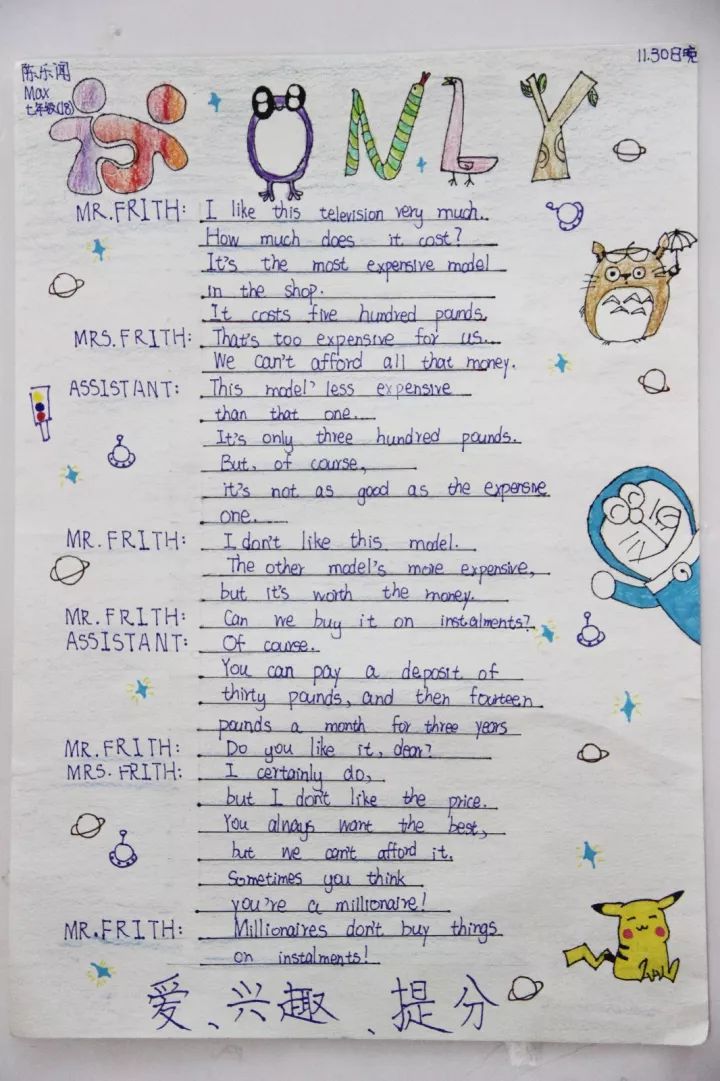 陈乐闻
Max
七年级(18)
11.30日晚
ONLY
MR.FRITH: I like this television very much.
How much does it cost?
It's the most expensive model
in the shop.
It costs five hundred pounds.
MRS.FRITH: That's too expensive for us.
We can't afford all that money.
ASSISTANT: This model' less expensive
than that one.
It's only three hundred pounds.
But, of course,
it's not as good as the expensive
one.
MR.FRITH: I don't like this model.
The other model's more expensive,
but it's worth the money.
MR.FRITH: Can we buy it on instalments?
ASSISTANT: Of course.
You can pay a deposit of
thirty pounds, and then fourteen
pounds a month for three years
MR.FRITH: Do you like it, dear?
MRS.FRITH: I certainly do,
but I don't like the price.
You always want the best,
but we can't afford it.
Sometimes you think
you're a millionaire!
MR.FRITH: Millionaires don't buy things
on instalments!
爱、兴趣、提分